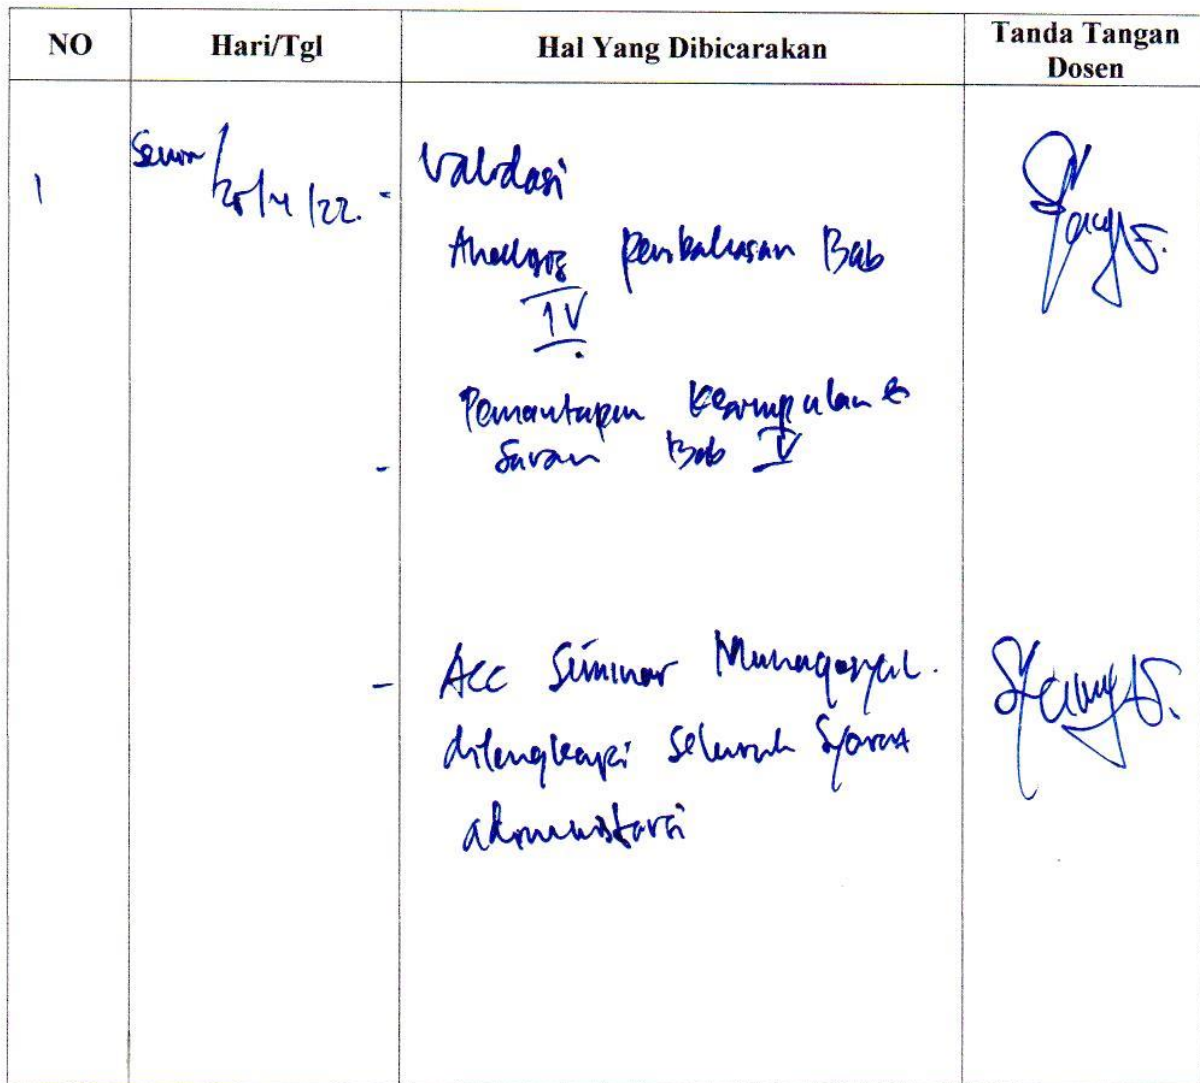 NO Hari/Tgl Hal Yang Dibicarakan Tanda Tangan
Dosen
1 Senin/ - Validasi
/22.
Analisis pembahasan Bab
IV
Pemantapan Kesimpulan &
- Saran Bab V
- Acc Seminar Munaqasyah.
dilengkapi seluruh syarat
administrasi